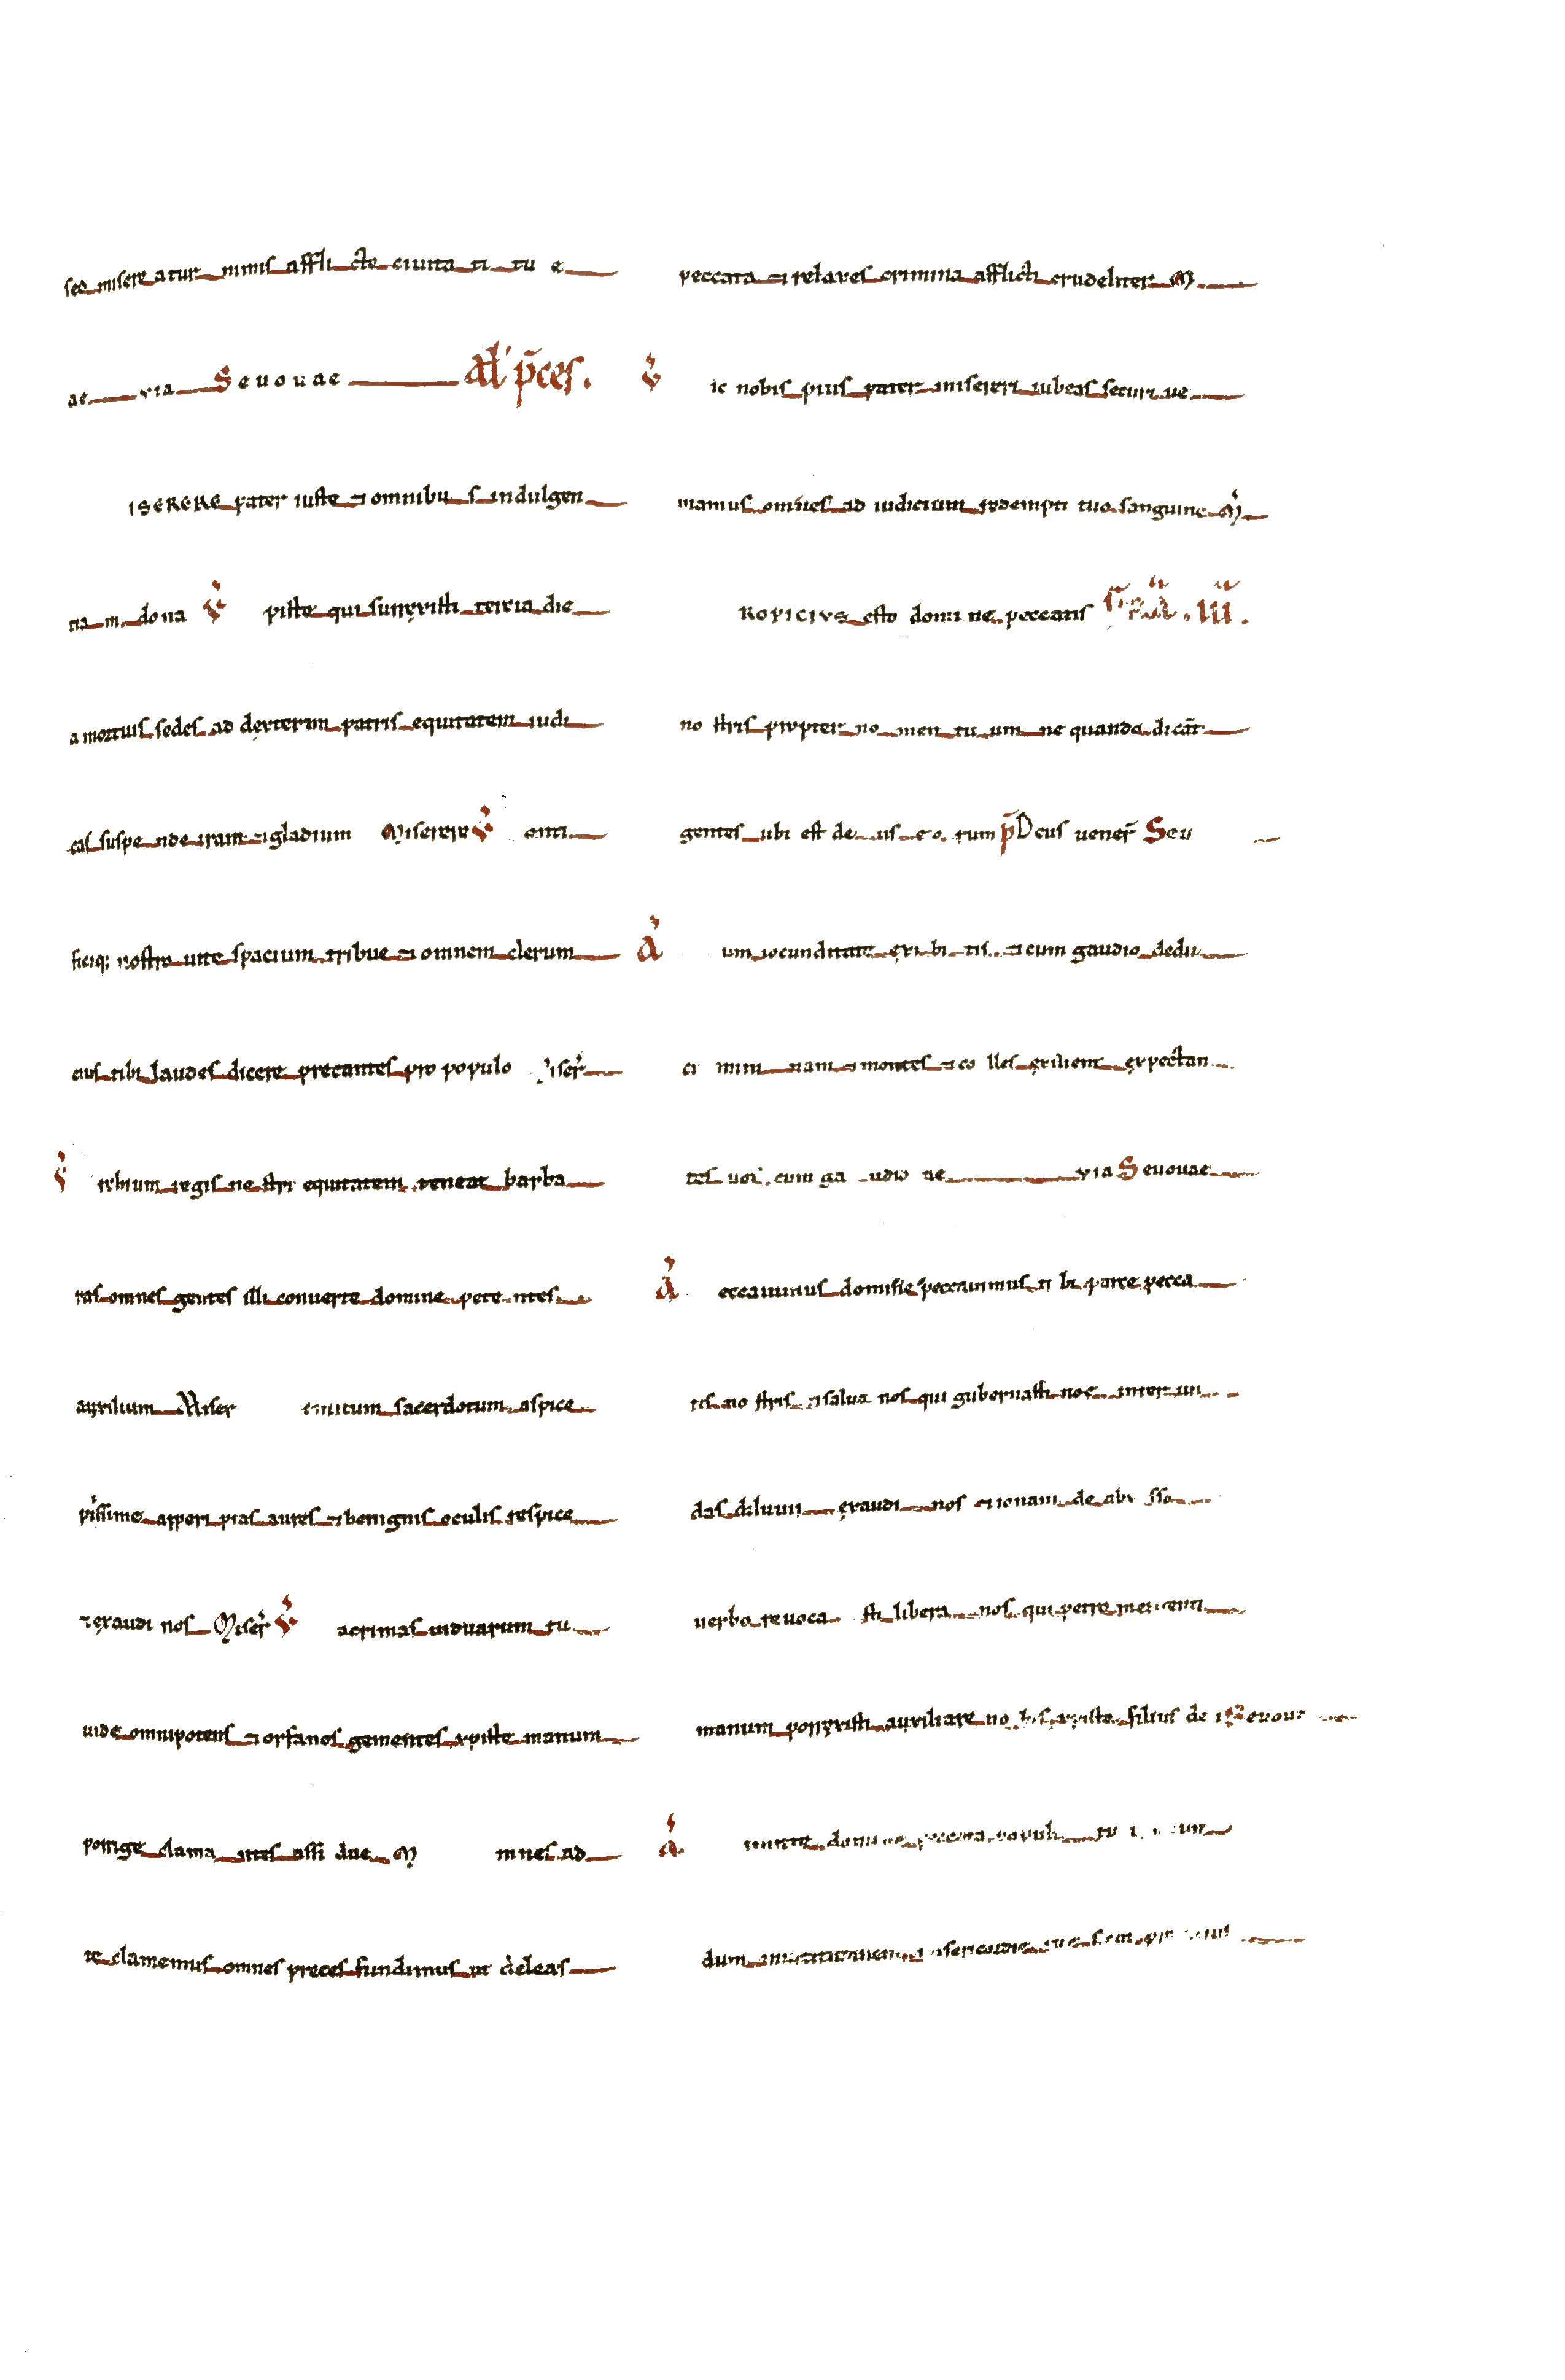 seo misere atur nimis affli cte ciuita ti tu e
ae via Seuouae Al' p̄ces.
ISERERE pater iuste ⁊ omnibu s indulgen
tia m dona v̓ piste qui surrexisti tercia die
a mortuis sedes ad dexteram patris equitatem iudi
cas suspe nde iram ⁊ gladium Miserere v̓ onti
ficiq; nostro uite spacium tribue ⁊ omnem clerum
eius tibi laudes dicere precantes pro populo iser̓
v̓ irbium regis no stri equitatem teneat barba
ras omnes gentes illi conuerte domine pete ntes
auxilium Miser emitum sacerdotum aspice
piissime apperi pias aures ⁊ benignis oculis respice
⁊ exaudi nos Miser̓ v̓ acrimas uiduarum tu
uide omnipotens ⁊ orfanos gementes xpiste manum
porrige clama ntes assi due M mnes ad
te clamemus omnes preces fundimus ut deleas
peccata ⁊ relaxes crimina afflicti crudeliter M
v̓ ic nobis pius pater misereri iubeas securi ue
niamus omnes ad iudicium redempti tuo sanguine M̓
ROPICIVS esto domi ne peccatis
no stris propter no men tu um ne quando dicāt
gentes ubi est de us e o rum p̄ Deus uener̄ Seu
A̓ um iocunditate exi bi tis ⁊ cum gaudio dedu
ci mini nam ⁊ montes ⁊ co lles exilient expectan
tes uos cum ga udio ae via Seuouae
A̓ eccauimus domine peccauimus ti bi parce pecca
tis no stris ⁊ salua nos qui gubernasti noe inter un
das diluuii exaudi nos ⁊ ionam de aby sso
uerbo reuoca sti libera nos qui petro mergenti
manum porrexisti auxiliare no bis xpiste filius de i Seuoua
A̓ domine peccata populi tu i
dum misericordie tue